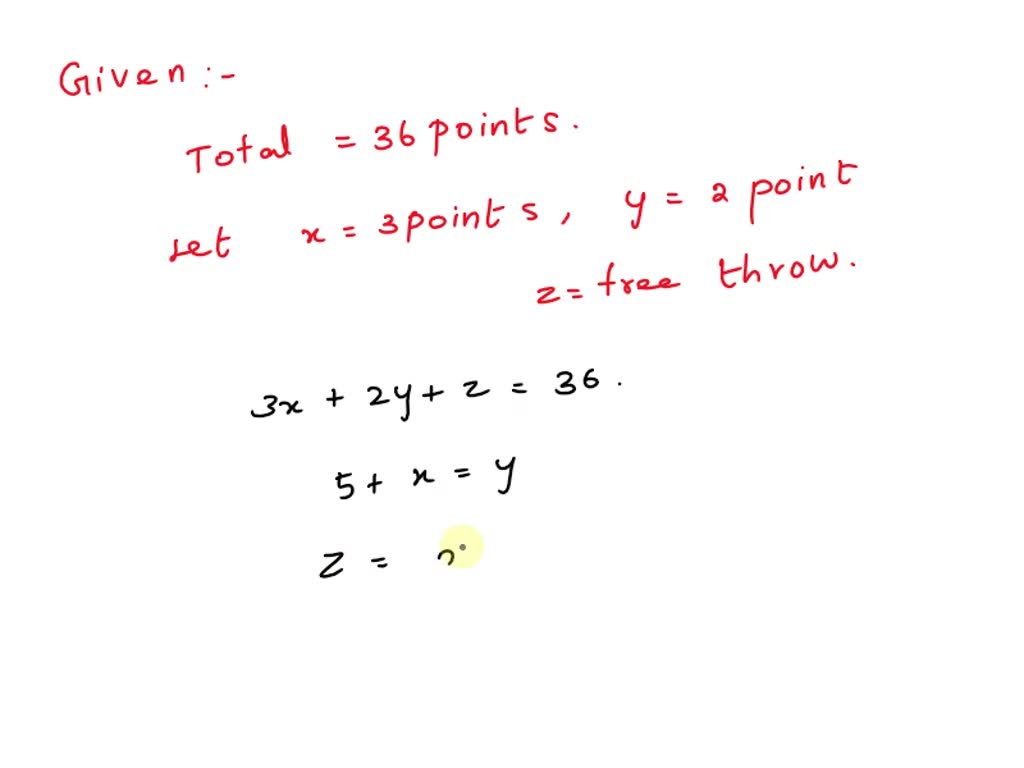 Given :-
Total = 36 points.
Let x = 3 points, y = 2 point
z = free throw.
3x + 2y + z = 36.
5 + x = y
z =